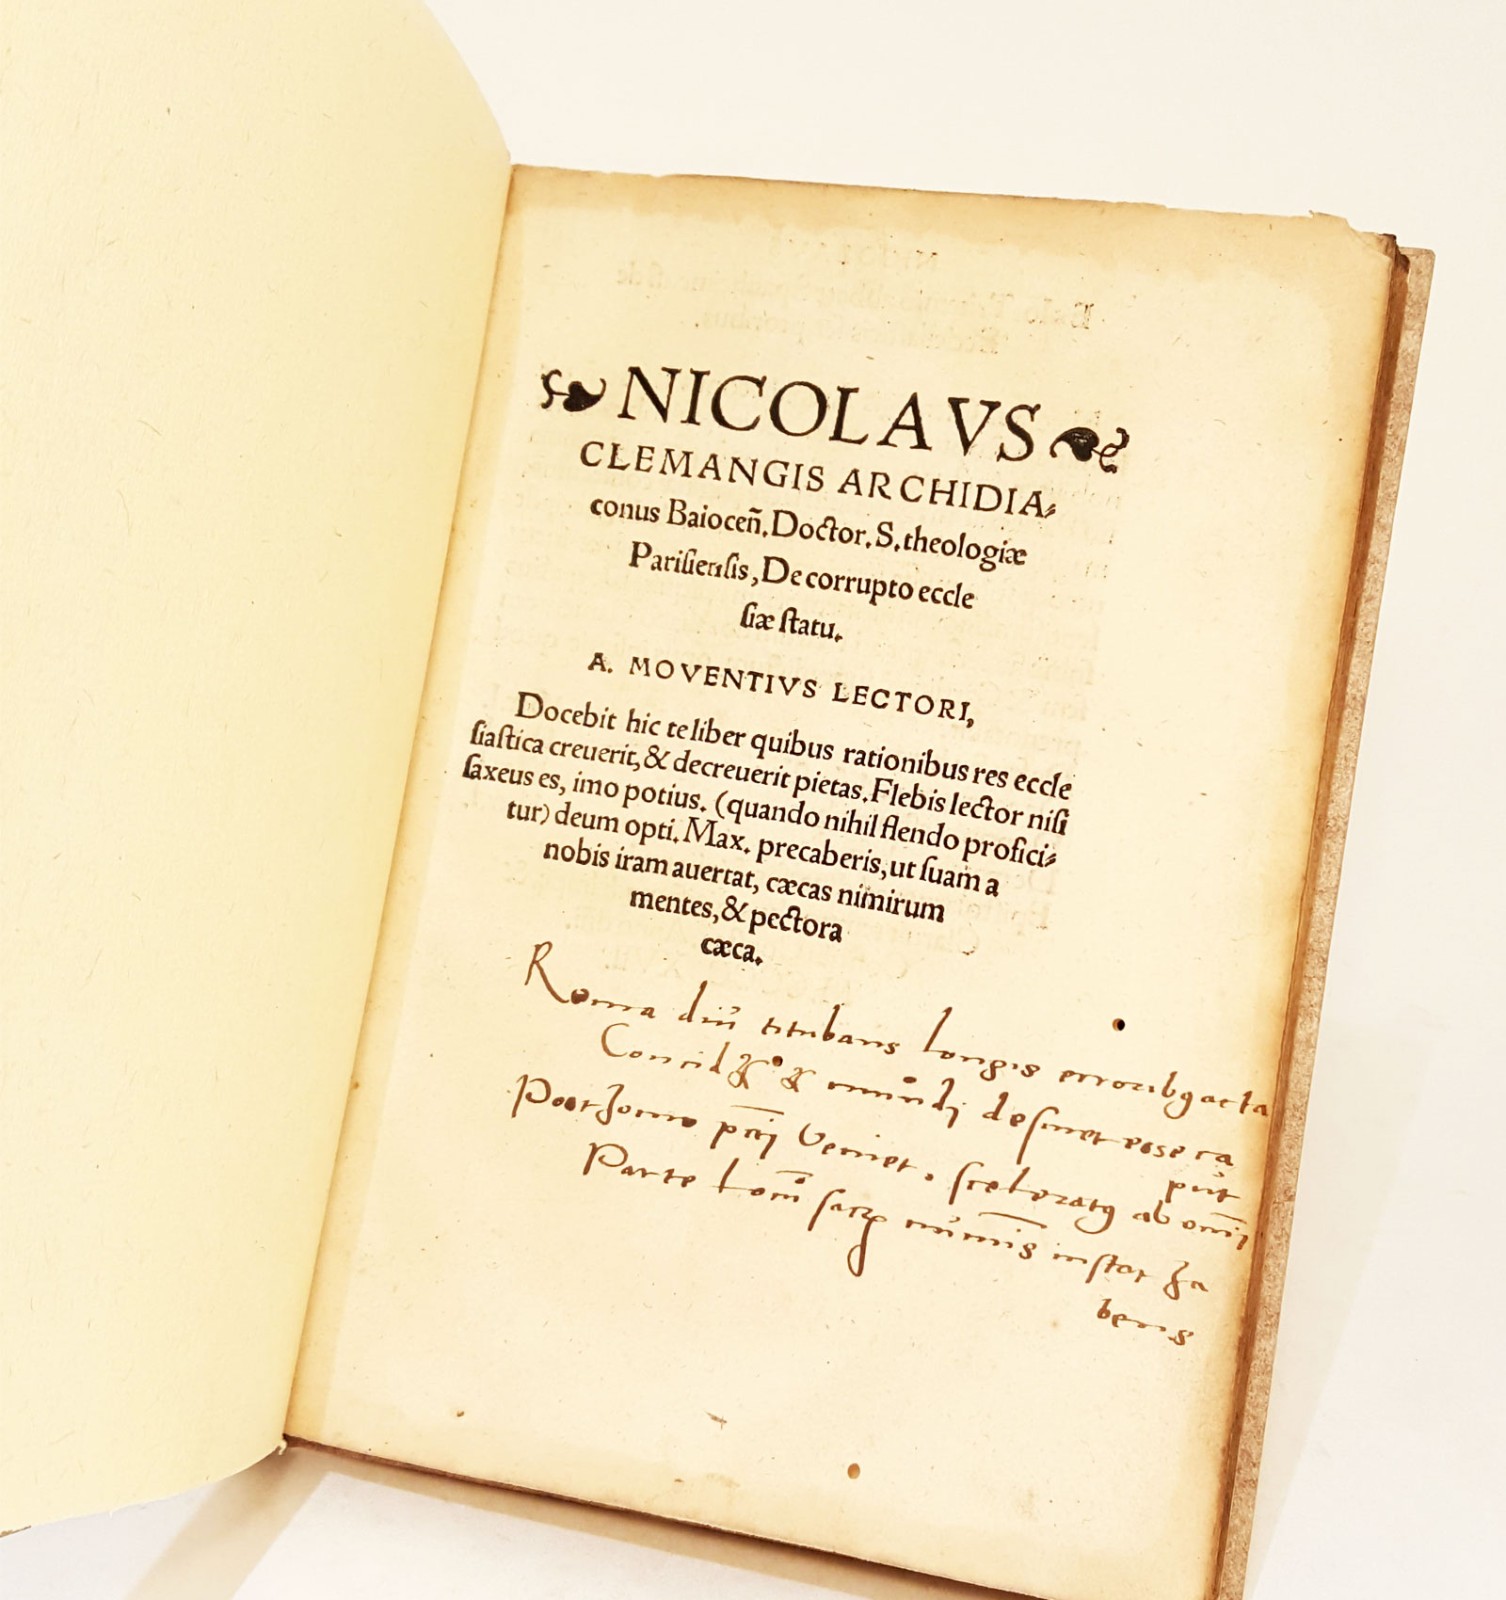 NICOLAVS
CLEMANGIS ARCHIDIA⸗
conus Baioceñ. Doctor. S. theologiæ
Parisiensis, De corrupto eccle
siæ statu.
A. MOVENTIVS LECTORI,
Docebit hic te liber quibus rationibus res eccle
siastica creuerit, & decreuerit pietas. Flebis lector nisi
saxeus es, imo potius. (quando nihil flendo profici⸗
tur) deum opti. Max. precaberis, ut suam a
nobis iram auertat, cæcas nimirum
mentes, & pectora
cæca.
Roma diu titubans longis erroribꝫ acta
mundi desinet esse ca
put
veniet. sceleratꝫ ab omni
Parte instar ha
bens